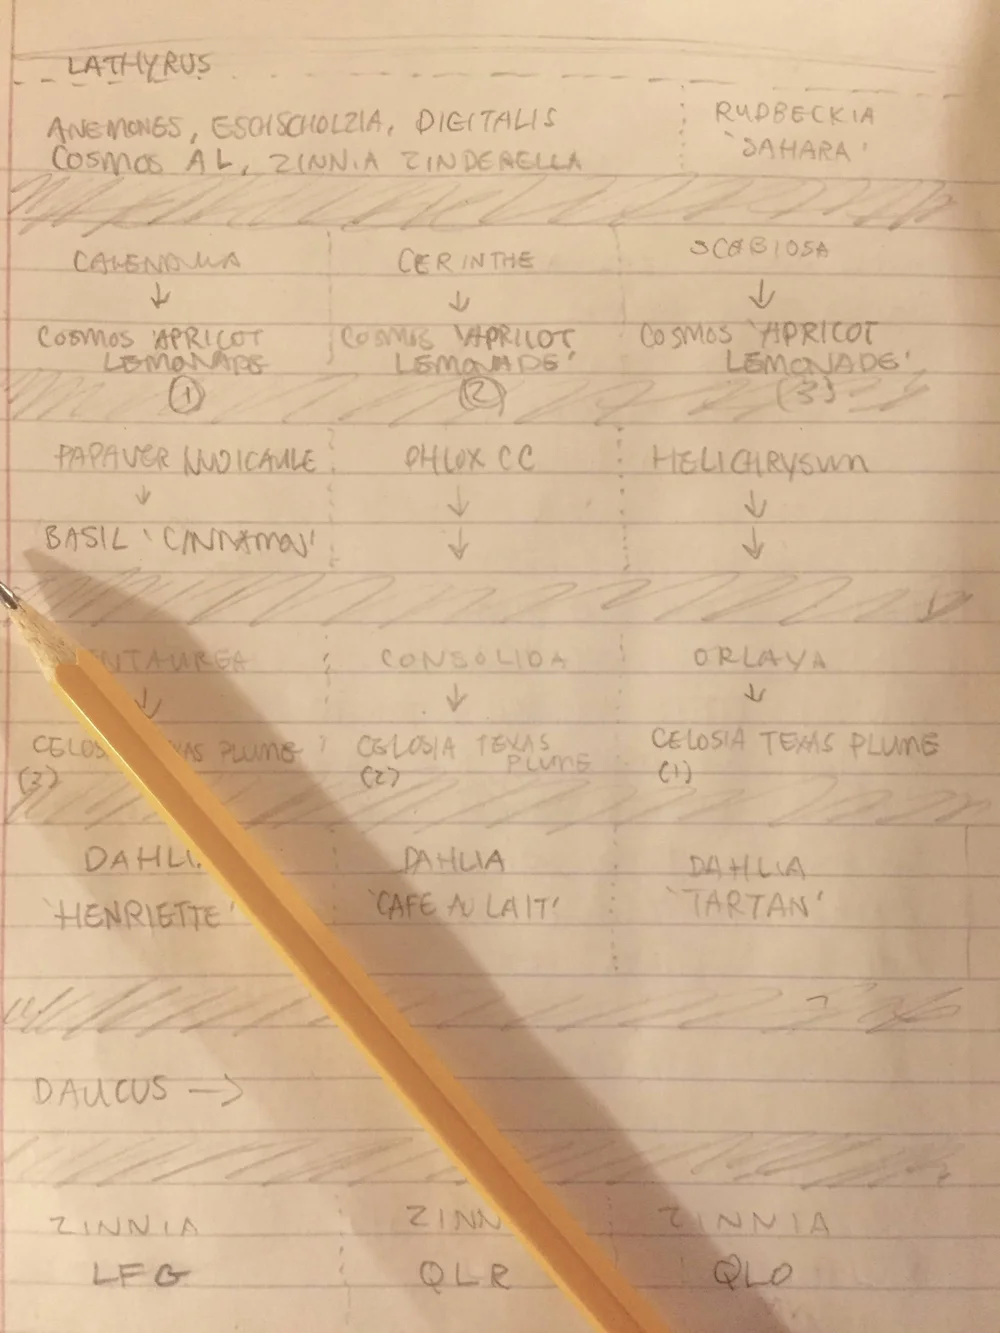 LATHYRUS
ANEMONES, ESCISCHOLZIA, DIGITALIS
COSMOS AL, ZINNIA ZINDERELLA
RUDBECKIA
'SAHARA'
CALENDULA
CERINTHE
SCABIOSA
↓ ↓ ↓
COSMOS 'APRICOT
LEMONADE
①
COSMOS 'APRICOT
LEMONADE'
②
COSMOS 'APRICOT
LEMONADE'
(3)
PAPAVER NUDICAULE
PHLOX CC
HELICHRYSUM
↓ ↓ ↓
BASIL 'CINNAMON' ↓ ↓
NTAUREA
CONSOLIDA
ORLAYA
↓ ↓ ↓
CELOS XAS PLUME
(3)
CELOSIA TEXAS
PLUME
(2)
CELOSIA TEXAS PLUME
(1)
DAHLI
'HENRIETTE'
DAHLIA
'CAFE AU LAIT'
DAHLIA
'TARTAN'
DAUCUS →
ZINNIA
LFG
ZINN
QLR
ZINNIA
QLO